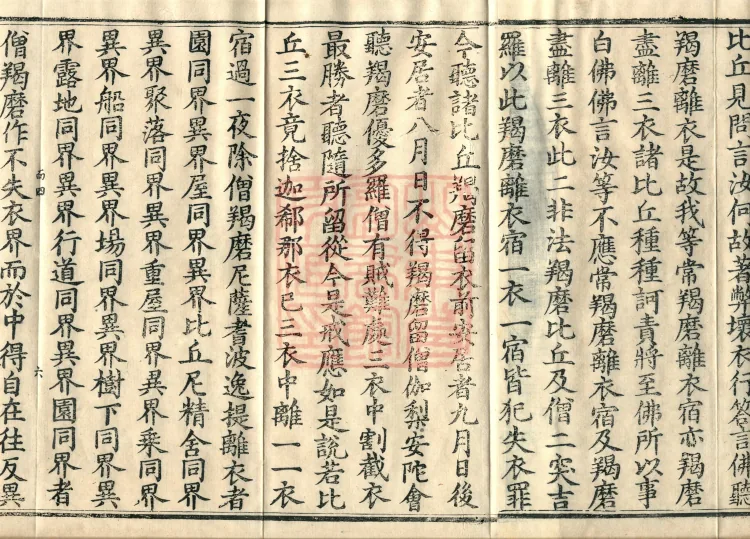 比丘見問言汝何故著弊壞衣行答言佛聽
羯磨離衣是故我等常羯磨離衣宿亦羯磨
盡離三衣諸比丘種種訶責將至佛所以事
白佛佛言汝等不應常羯磨離衣宿及羯磨
盡離三衣此二非法羯磨比丘及僧二突吉
羅以此羯磨離衣宿一衣一宿皆犯失衣罪
今聽諸比丘羯磨留衣前安居者九月日後
安居者八月日不得羯磨留僧伽梨安陀會
聽羯磨優多羅僧有賊難處三衣中割截衣
最勝者聽隨所留從今是戒應如是說若比
丘三衣竟捨迦郗那衣已三衣中離一一衣
宿過一夜除僧羯磨尼薩耆波逸提離衣者
園同界異界屋同界異界比丘尼精舍同界
異界聚落同界異界重屋同界異界乘同界
異界船同界異界場同界異界樹下同界異
界露地同界異界行道同界異界園同界者
僧羯磨作不失衣界而於中得自在往反異
而四
六